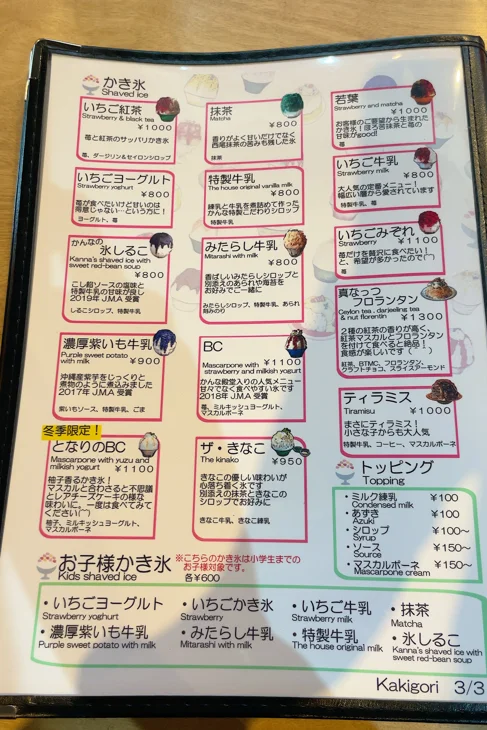 かき氷
Shaved ice
いちご紅茶
Strawberry & black tea
¥1000
苺と紅茶のサッパリかき氷
苺、ダージリン&セイロンシロップ
いちごヨーグルト
Strawberry yoghurt
¥800
苺が食べたいけど甘いのは
得意じゃない…という方に!
ヨーグルト、苺
かんなの
氷しるこ
Kanna's shaved ice with
sweet red-bean soup
¥800
こし餡ソースの塩味と
特製牛乳の甘味が良し
2019年 J.M.A 受賞
しるこシロップ、特製牛乳
濃厚紫いも牛乳
Purple sweet potato
with milk
¥900
沖縄産紫芋をじっくりと
煮物のように煮込みました
2017年 J.M.A 受賞
紫いもソース、特製牛乳、ごま
冬季限定!
となりのBC
Mascarpone with yuzu and
milkish yogurt
¥1100
柚子香るかき氷!
マスカルと合わさると不思議
とレアチーズケーキの様な
味わいに。一度は食べてみて
ください
柚子、ミルキッシュヨーグルト、
マスカルポーネ
抹茶
Matcha
¥800
香りがよく甘いだけでなく
西尾抹茶の苦みも残した氷
抹茶
特製牛乳
The house original vanilla milk
¥800
練乳と牛乳を煮詰めて作った
かんな特製こだわりシロップ
特製牛乳
みたらし牛乳
Mitarashi with milk
¥800
香ばしいみたらしシロップと
別添えのあられや海苔を
お好みでご一緒に
みたらしシロップ、特製牛乳、あられ
刻みのり
BC
Mascarpone with
strawberry and milkish yogurt
¥1100
かんな殿堂入りの人気メニュー
甘々でなく食べやすい氷です
2018年 J.M.A 受賞
苺、ミルキッシュヨーグルト、
マスカルポーネ
ザ・きなこ
The kinako
¥950
きなこの優しい味わいが
心落ち着く氷です
別添えの抹茶ときなこの
シロップでお好みに
きなこ牛乳、きなこ練乳
若葉
Strawberry and matcha
¥1000
お客様のご要望から生まれた
かき氷!ほろ苦抹茶と苺の
甘味がgood!
苺
いちご牛乳
Strawberry milk
¥800
大人気の定番メニュー!
幅広い層から愛されています
特製牛乳、苺
いちごみぞれ
Strawberry
¥1100
苺だけを贅沢に食べたい!
と、希望が多かったので
苺
真なっつ
フロランタン
Ceylon tea , darjeeling tea
& nut florentin
¥1300
2種の紅茶の香りが高く、
紅茶マスカルとフロランタン
を付けて食べると絶品!
食感が楽しいです
紅茶、BTMC、フロランタン、
クラフトチョコ、スライスアーモンド
ティラミス
Tiramisu
¥1000
まさにティラミス!
小さな子からも大人気
特製牛乳、コーヒー、マスカルポーネ
トッピング
Topping
・ミルク練乳 ¥100
Condensed milk
・あずき ¥100
Azuki
・シロップ ¥100~
Syrup
・ソース ¥150~
Source
・マスカルポーネ ¥150~
Mascarpone cream
お子様かき氷
Kids shaved ice
※こちらのかき氷は小学生までの
お子様対象です。
各¥600
・いちごヨーグルト
Strawberry yoghurt
・いちごかき氷
Strawberry
・いちご牛乳
Strawberry milk
・抹茶
Matcha
・濃厚紫いも牛乳
Purple sweet potato with milk
・みたらし牛乳
Mitarashi with milk
・特製牛乳
The house original milk
・氷しるこ
Kanna's shaved ice with
sweet red-bean soup
Kakigori 3/3